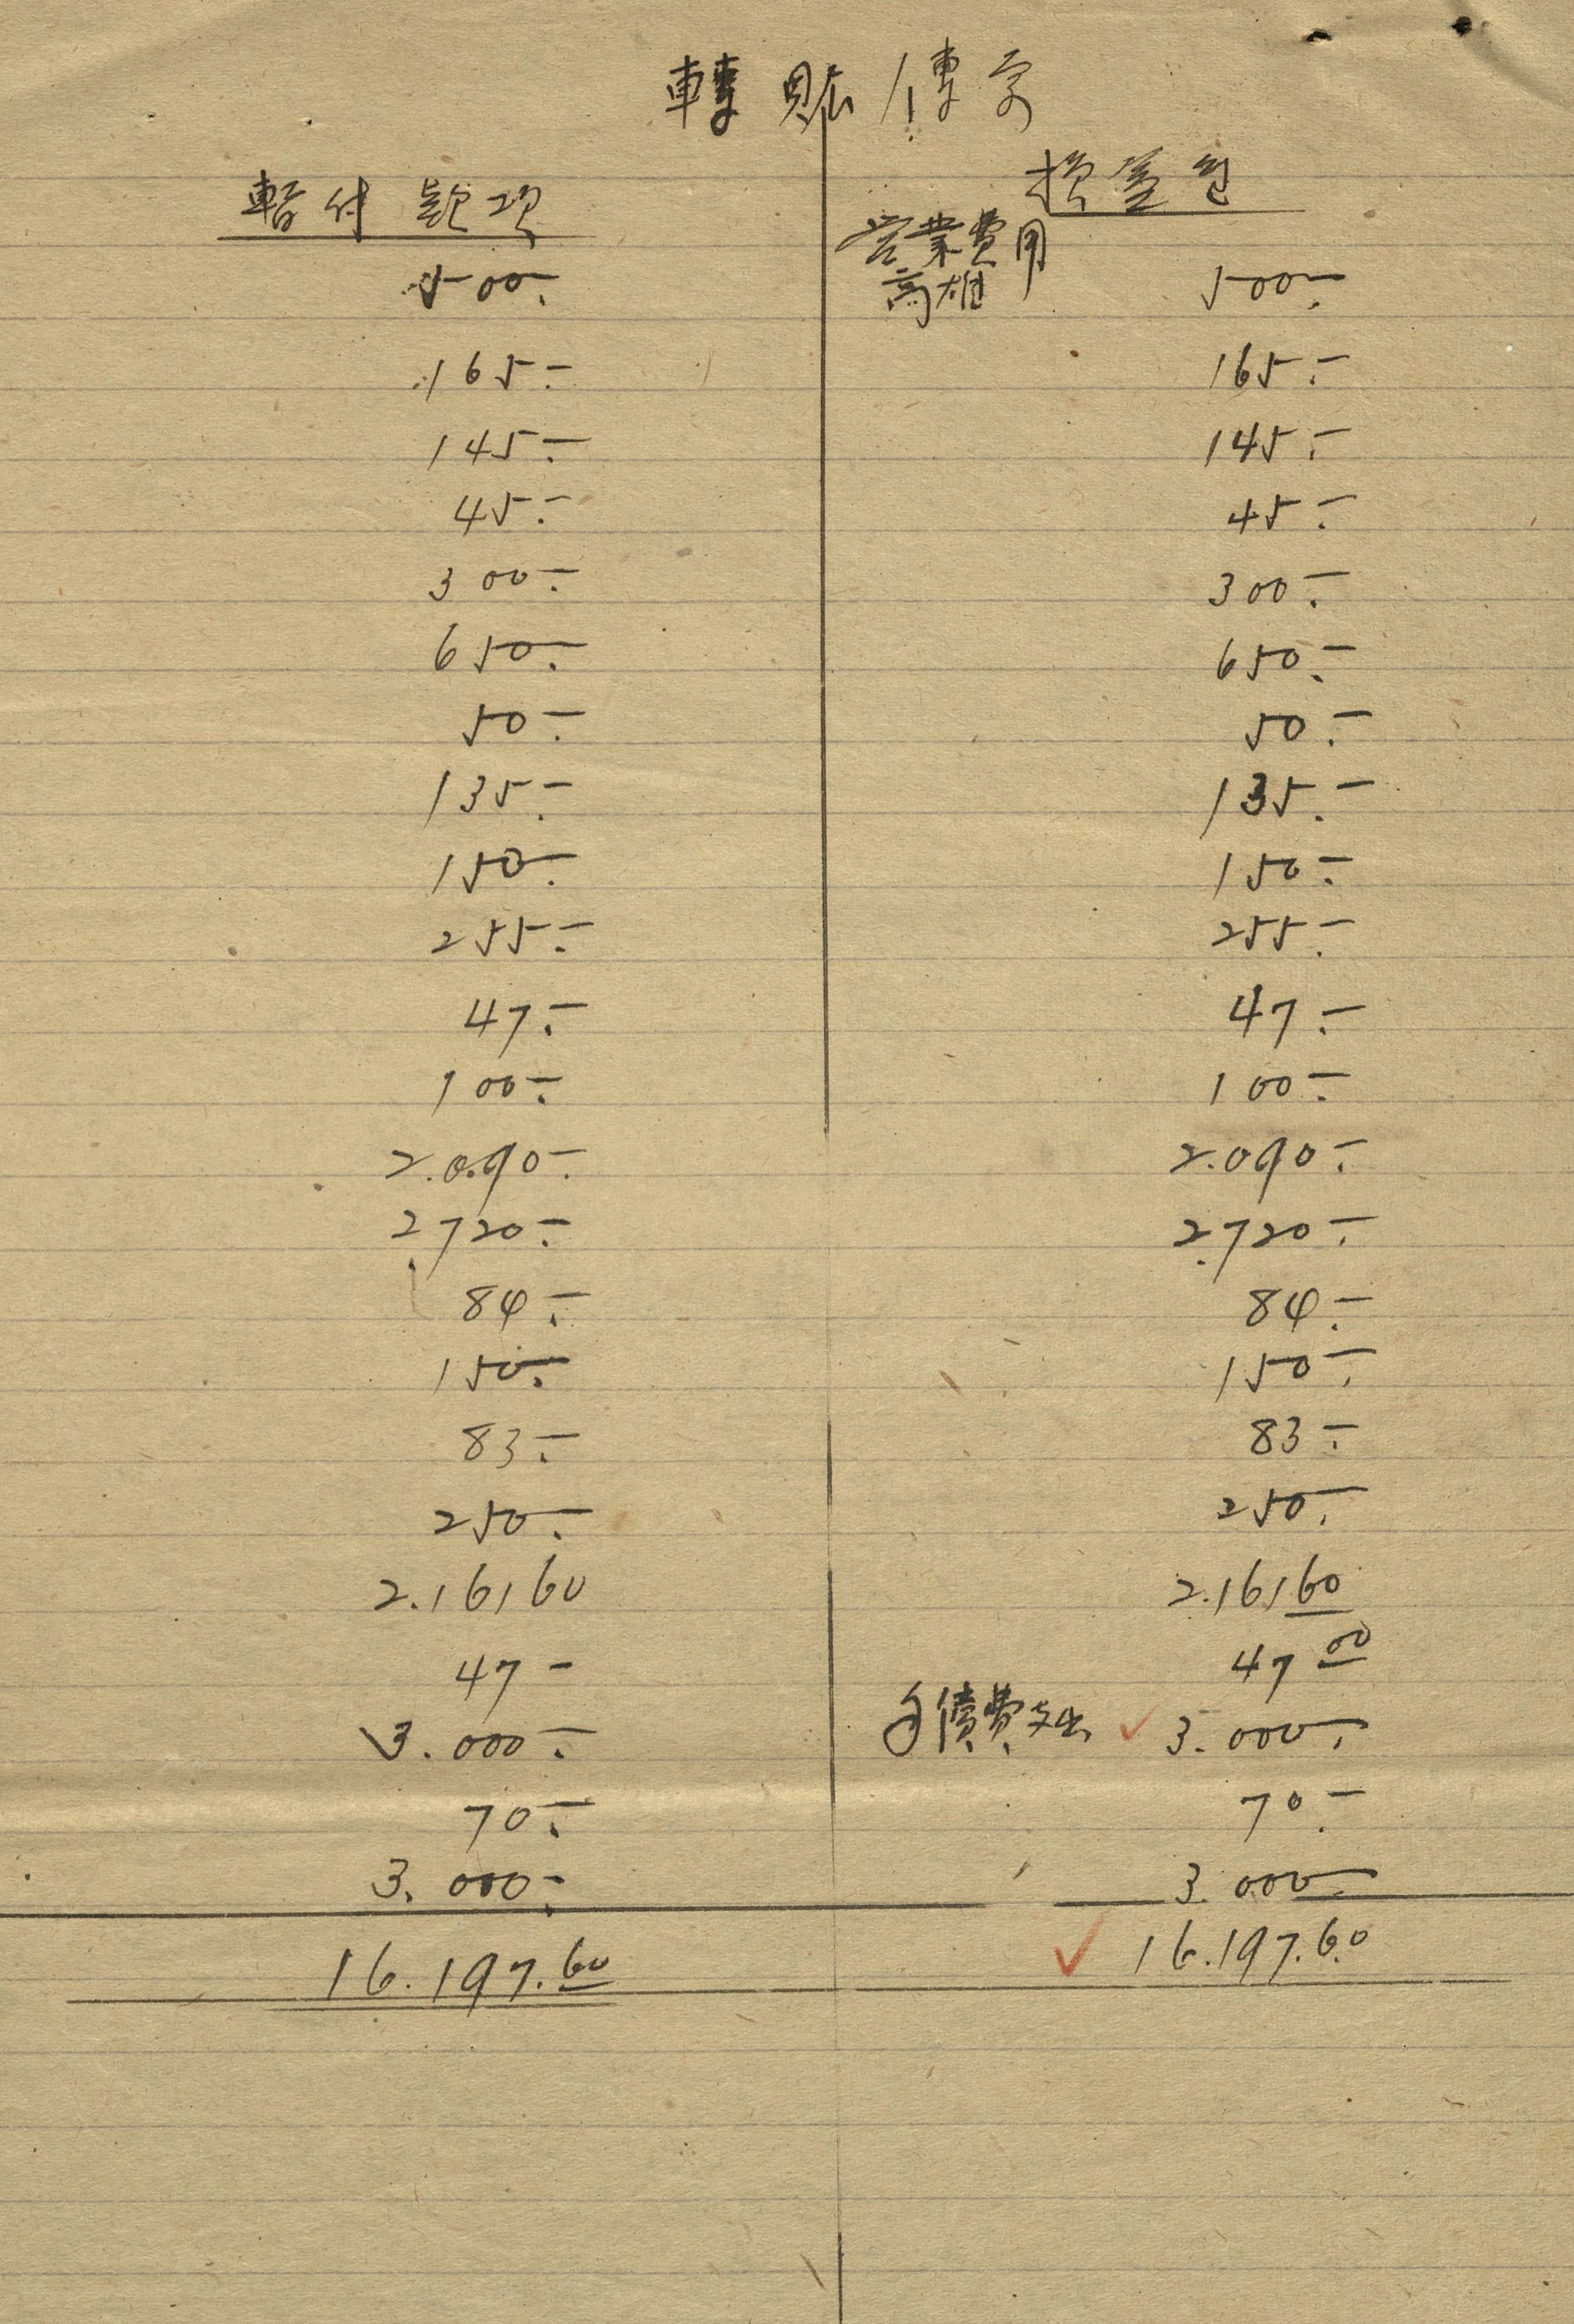 轉賬傳票
暫付款項
損益包
營業費用
高雄
500.- 500.-
165.- 165.-
145.- 145.-
45.- 45.-
300.- 300.-
650.- 650.-
50.- 50.-
135.- 135.-
150.- 150.-
255.- 255.-
47.- 47.-
100.- 100.-
2.090.- 2.090.-
2.720.- 2.720.-
84.- 84.-
150.- 150.-
83.- 83.-
250.- 250.-
2.161 60 2.161 60
47 - 47 00
3.000.- 償費支出 3.000.-
70.- 70.-
3.000.- 3.000.-
16.197.60 16.197.60